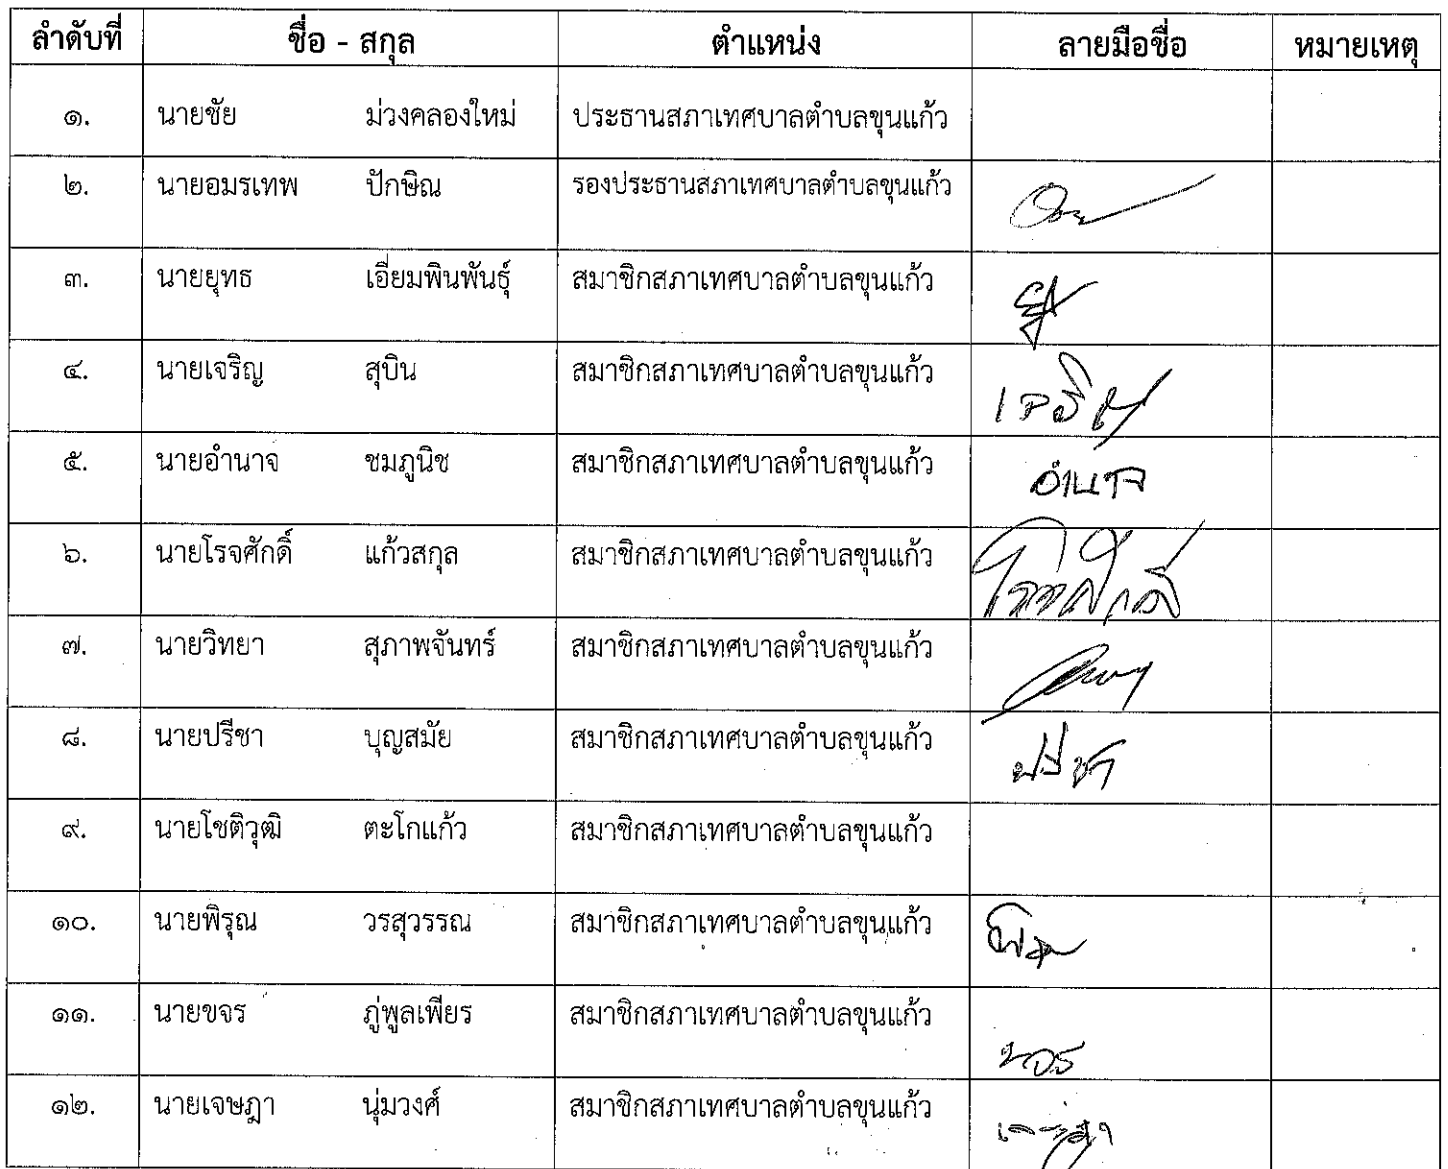 ลำดับที่ ชื่อ - สกุล ตำแหน่ง ลายมือชื่อ หมายเหตุ
๑. นายชัย ม่วงคลองใหม่ ประธานสภาเทศบาลตำบลขุนแก้ว
๒. นายอมรเทพ ปักษิณ รองประธานสภาเทศบาลตำบลขุนแก้ว
๓. นายยุทธ เอี่ยมพินพันธุ์ สมาชิกสภาเทศบาลตำบลขุนแก้ว
๔. นายเจริญ สุบิน สมาชิกสภาเทศบาลตำบลขุนแก้ว เจริญ
๕. นายอำนาจ ชมภูนิช สมาชิกสภาเทศบาลตำบลขุนแก้ว อำนาจ
๖. นายโรจศักดิ์ แก้วสกุล สมาชิกสภาเทศบาลตำบลขุนแก้ว โรจศักดิ์
๗. นายวิทยา สุภาพจันทร์ สมาชิกสภาเทศบาลตำบลขุนแก้ว
๘. นายปรีชา บุญสมัย สมาชิกสภาเทศบาลตำบลขุนแก้ว ปรีชา
๙. นายโชติวุฒิ ตะโกแก้ว สมาชิกสภาเทศบาลตำบลขุนแก้ว
๑๐. นายพิรุณ วรสุวรรณ สมาชิกสภาเทศบาลตำบลขุนแก้ว
๑๑. นายขจร ภู่พูลเพียร สมาชิกสภาเทศบาลตำบลขุนแก้ว ขจร
๑๒. นายเจษฎา นุ่มวงศ์ สมาชิกสภาเทศบาลตำบลขุนแก้ว เจษฎา